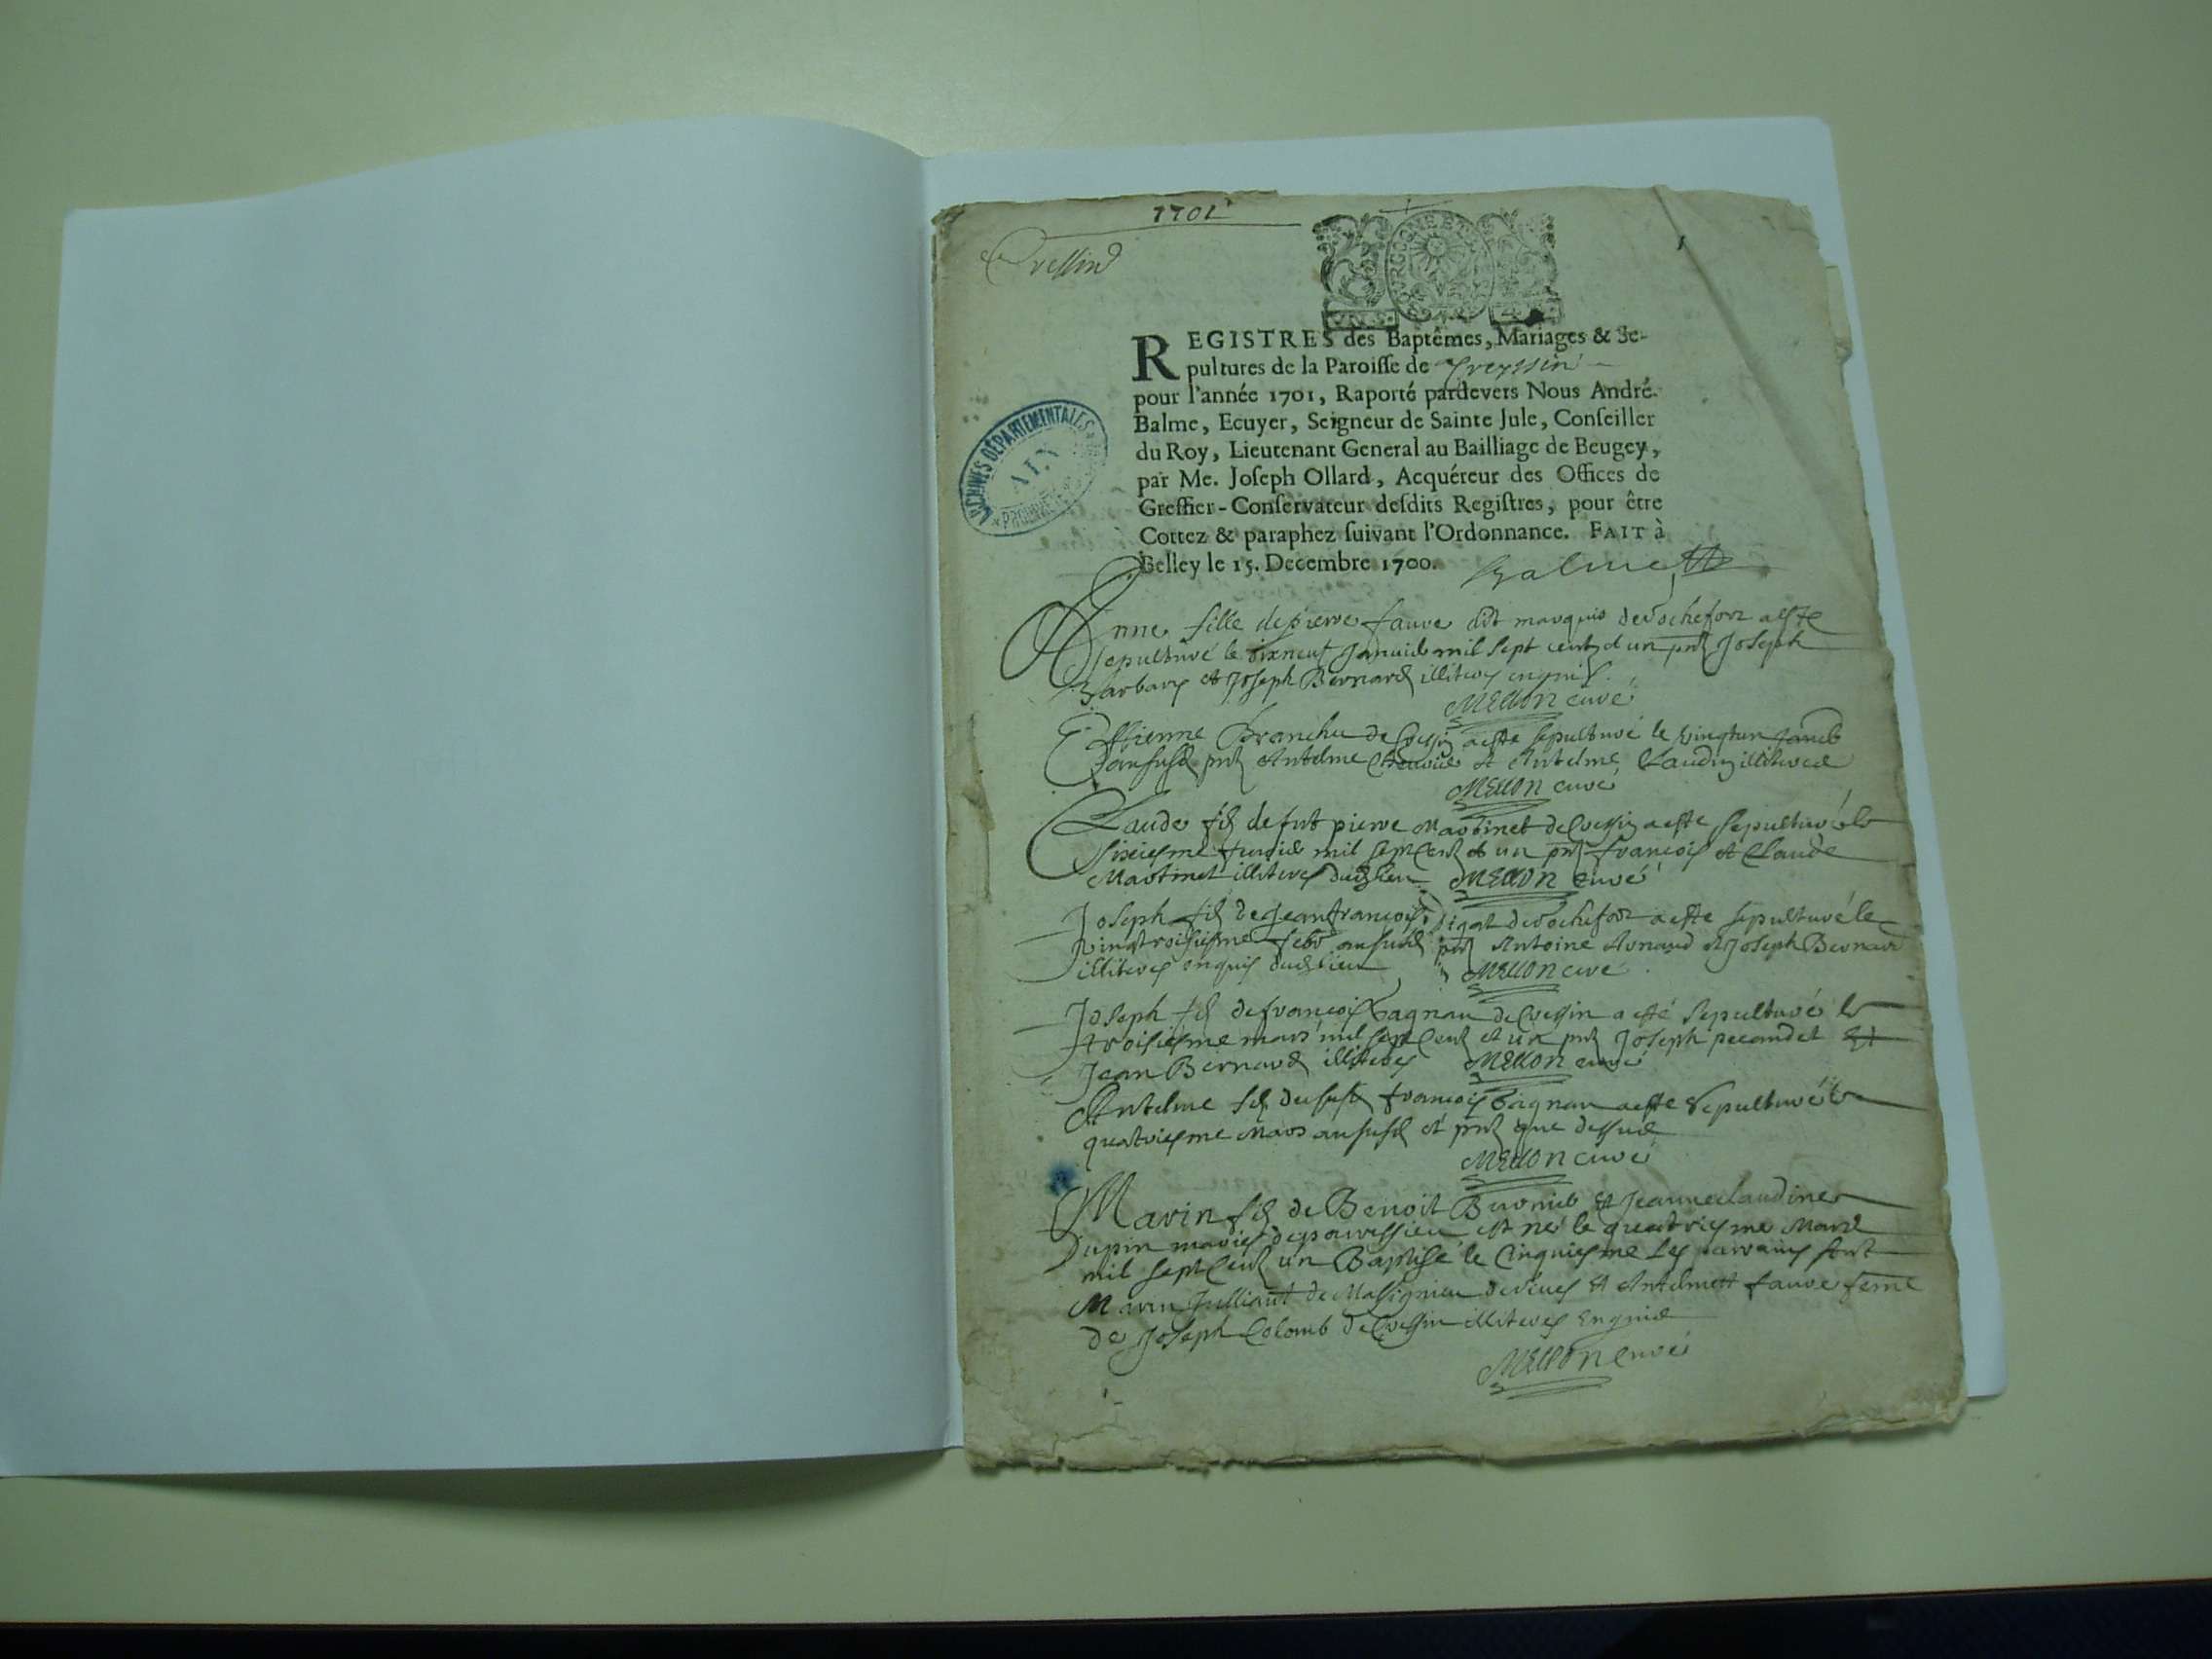 1701
Cressin
BOURGOGNE ET
REGISTRES des Baptêmes, Mariages & Se-
pultures de la Paroisse de Creyssin
pour l'année 1701, Raporté pardevers Nous André
Balme, Ecuyer, Seigneur de Sainte Jule, Conseiller
du Roy, Lieutenant General au Bailliage de Beugey,
par Me. Joseph Ollard, Acquéreur des Offices de
Greffier-Conservateur desdits Registres, pour être
Cottez & paraphez suivant l'Ordonnance. FAIT à
Belley le 15. Decembre 1700.
Balme
ARCHIVES DÉPARTEMENTALES
AIN
Anne fille de pierre fauve dit marquis de Rochefort a este
sepulturé le dixneuf Janvier mil sept cent et un pnt Joseph
Barbary et Joseph Bernard illiteres enquis
Mellon curé
Estienne Branchu de Cressin a este sepulturé le vingtun
an susd pnt Antelme et Antelme Claudin illiteres
Mellon curé
Claude fils de fut pierre Martinet de Cressin a este sepulturé le
sixiesme fevrier mil sept cent et un pnt francois et Claude
Martinet illiteres dud lieu Mellon curé
Joseph fils de Jean francois Digat de Rochefort a este sepulturé le
vingtroisiesme febr an susd pnt Antoine Arnaud et Joseph Bernard
illiteres enquis dud lieu Mellon curé
Joseph fils de francois Gagnau de Cressin a esté sepulturé le
troisiesme mars mil sept cent et un pnt Joseph pecandet et
Jean Bernard illiteres Mellon curé
Antelme fils dususd francois Gagnau a este sepulturé le
quatriesme Mars an susd et pnt que dessus
Mellon curé
Marin fils de Benoit Burnier et Jeanne claudine
Dupin mariés de parvessieu est né le quatriesme Mars
mil sept cent un Baptisé le cinquiesme Les parains sont
Marin Julliant de Massignieu de Rives et Antelmette fauve feme
de Joseph Colomb de Cressin illiteres Enquis
Mellon curé